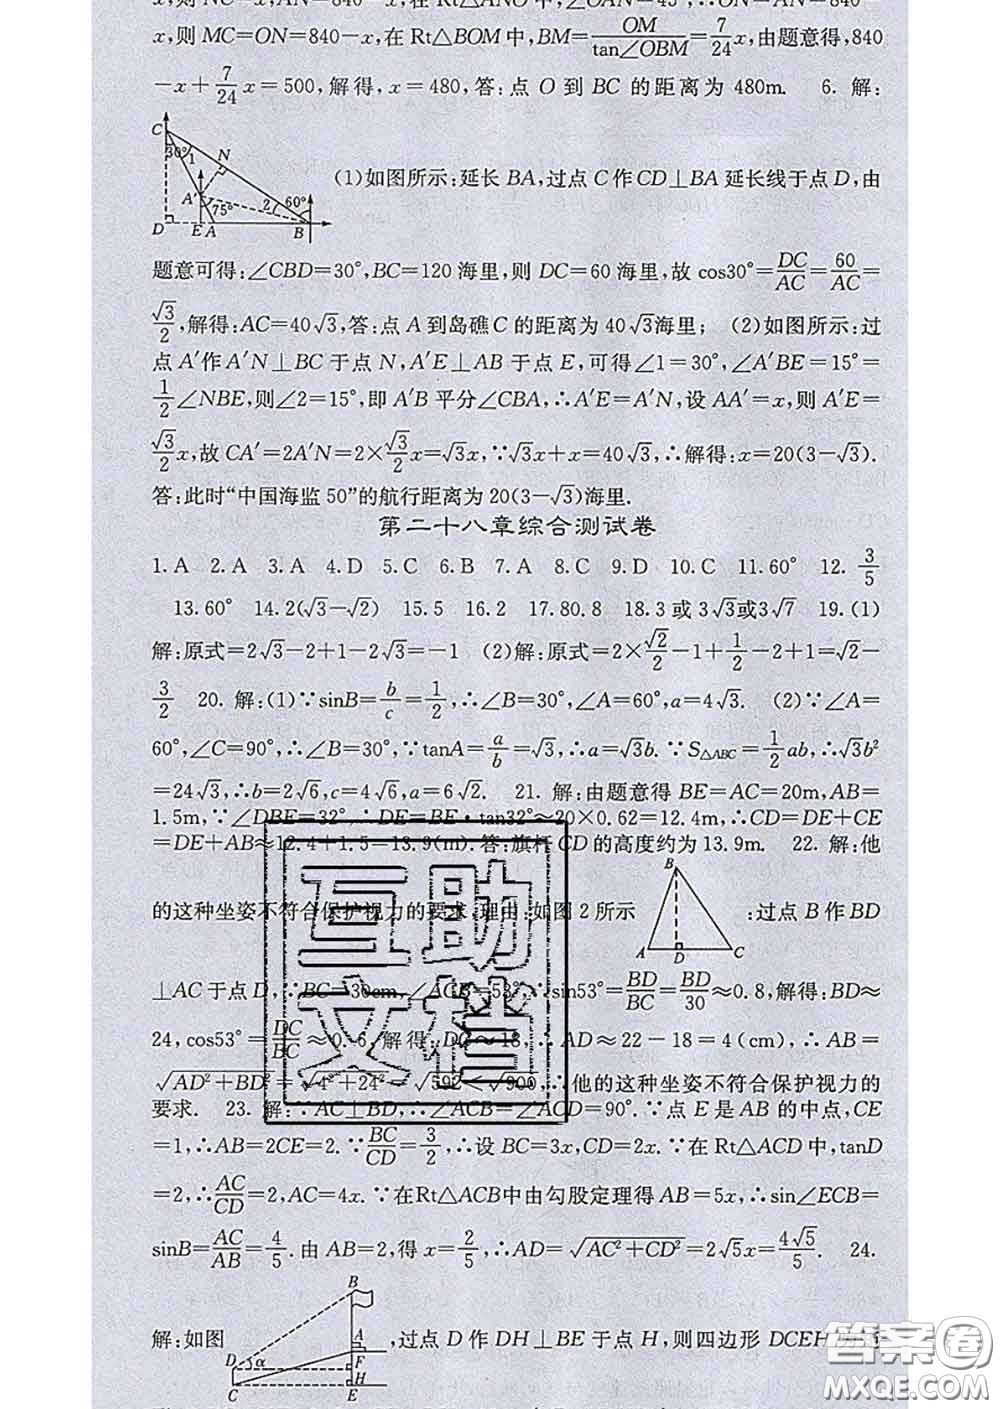 x,则NC=x,AN=840-x,在Rt△ANO中,∠OAN=45°,∴ON=AN=840-
x,则MC=ON=840-x,在Rt△BOM中,BM=OM/tan∠OBM=7/24x,由题意得,840
-x+7/24x=500,解得,x=480,答:点O到BC的距离为480m. 6. 解:
C 30° 1 N A' 75° 2 60° D E A B
(1)如图所示:延长BA,过点C作CD⊥BA延长线于点D,由
题意可得:∠CBD=30°,BC=120海里,则DC=60海里,故cos30°=DC/AC=60/AC=
√3/2,解得:AC=40√3,答:点A到岛礁C的距离为40√3海里; (2)如图所示:过
点A'作A'N⊥BC于点N,A'E⊥AB于点E,可得∠1=30°,∠A'BE=15°=
1/2∠NBE,则∠2=15°,即A'B平分∠CBA,∴A'E=A'N,设AA'=x,则A'E=
√3/2x,故CA'=2A'N=2×√3/2x=√3x,∵√3x+x=40√3,∴解得:x=20(3-√3).
答:此时“中国海监50”的航行距离为20(3-√3)海里.
第二十八章综合测试卷
1.A 2.A 3.A 4.D 5.C 6.B 7.A 8.C 9.D 10.C 11.60° 12. 3/5
13.60° 14.2(√3-√2) 15.5 16.2 17.80.8 18.3或3√3或3√7 19.(1)
解:原式=2√3-2+1-2√3=-1 (2)解:原式=2×√2/2-1+1/2-2+1=√2-
3/2 20. 解:(1)∵sinB=b/c=1/2,∴∠B=30°,∠A=60°,a=4√3. (2)∵∠A=
60°,∠C=90°,∴∠B=30°,∵tanA=a/b=√3,∴a=√3b. ∵S△ABC=1/2ab,∴√3b²
=24√3,∴b=2√6,c=4√6,a=6√2. 21. 解:由题意得BE=AC=20m,AB=
1.5m,∵∠DBE=32°,∴DE=BE·tan32°≈20×0.62=12.4m,∴CD=DE+CE
=DE+AB≈12.4+1.5=13.9(m).答:旗杆CD的高度约为13.9m. 22. 解:他
的这种坐姿不符合保护视力的要求,理由:如图2所示
B A D C
:过点B作BD
⊥AC于点D,∵BC=30cm,∠ACB=53°,∴sin53°=BD/BC=BD/30≈0.8,解得:BD≈
24,cos53°=DC/BC≈0.6,解得:DC≈18,∴AD≈22-18=4(cm),∴AB=
√AD²+BD²=√4²+24²=√592<√900,∴他的这种坐姿不符合保护视力的
要求. 23. 解:∵AC⊥BD,∴∠ACB=∠ACD=90°.∵点E是AB的中点,CE
=1,∴AB=2CE=2.∵BC/CD=3/2,∴设BC=3x,CD=2x.∵在Rt△ACD中,tanD
=2,∴AC/CD=2,AC=4x.∵在Rt△ACB中由勾股定理得AB=5x,∴sin∠ECB=
sinB=AC/AB=4/5.由AB=2,得x=2/5,∴AD=√AC²+CD²=2√5x=4√5/5. 24.
B A D α F C H E
解:如图,过点D作DH⊥BE于点H,则四边形DCEH
互助
文档
答案圈
MXQE.COM